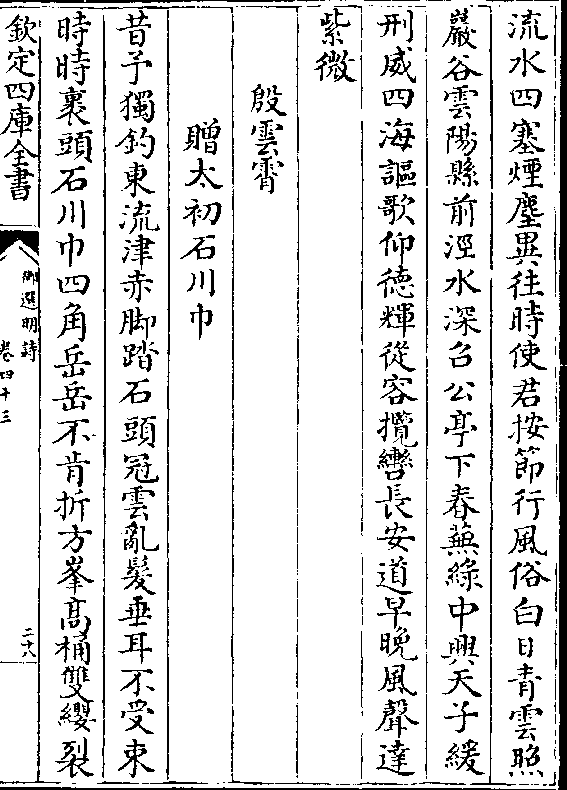 流水四塞煙塵異往時使君按節行風俗白日青雲照
巖谷雲陽縣前涇水深召公亭下春蕪綠中興天子緩
刑威四海謳歌仰德輝從容攬轡長安道早晚風聲達
紫微
殷雲霄
贈太初石川巾
昔予獨釣東流津赤脚踏石頭冠雲亂髮垂耳不受束
時時裹頭石川巾四角岳岳不肯折方峯高桶雙纓裂
欽定四庫全書
御選明詩
卷四十三
二十八